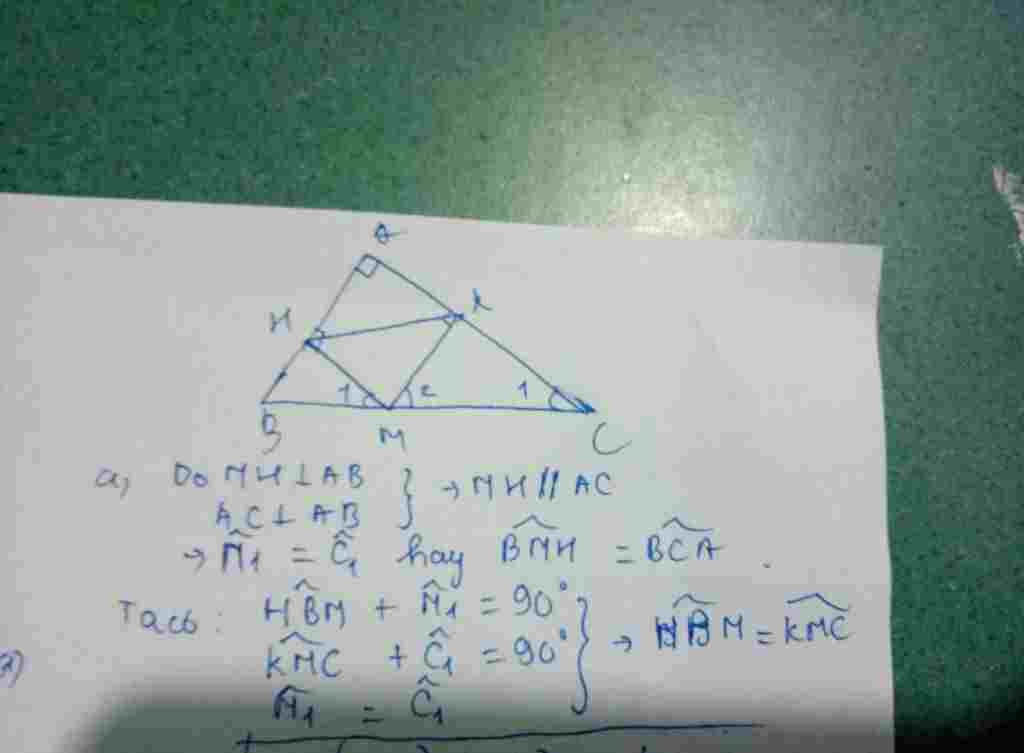 A
H K
1 2 1
B M C
a, Do MH ⊥ AB
AC ⊥ AB } → MH // AC
→ M̂1 = Ĉ1 hay BM̂H = BĈA .
Ta có : HB̂M + M̂1 = 90°
KM̂C + Ĉ1 = 90° } → HB̂M = KM̂C
M̂1 = Ĉ1